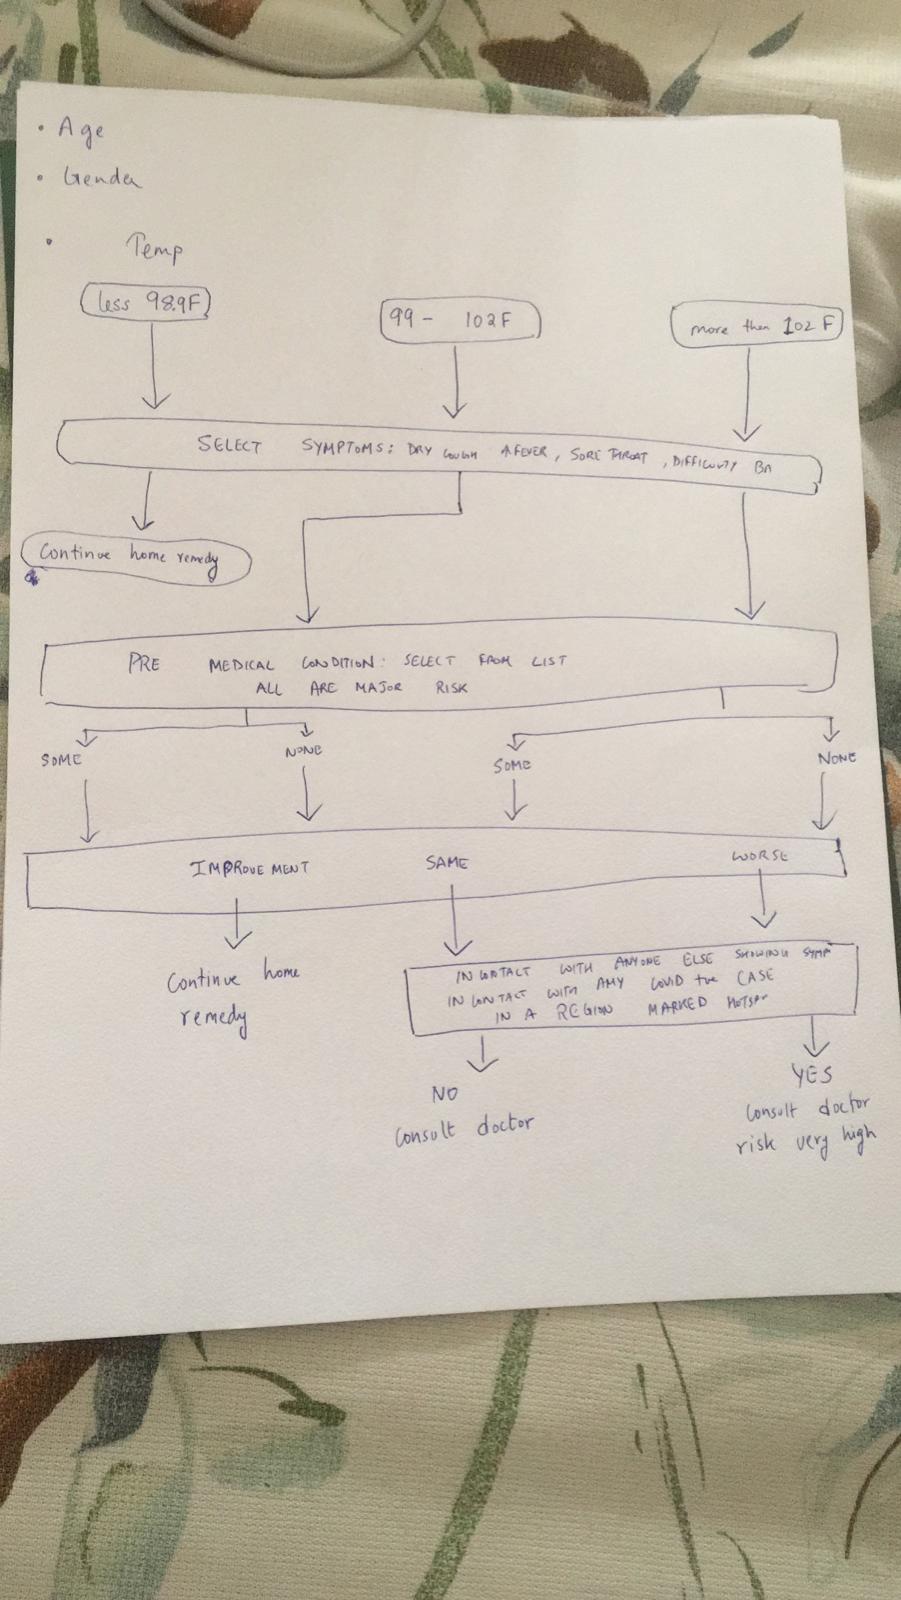 • Age
• Gender
• Temp
less 98.9F
99 - 102F
more then 102 F
SELECT SYMPTOMS: DRY COUGH, FEVER, SORE THROAT, DIFFICULTY
Continue home remedy
PRE MEDICAL CONDITION: SELECT FROM LIST
ALL ARE MAJOR RISK
SOME
NONE
SOME
NONE
IMPROVEMENT
SAME
WORSE
Continue home
remedy
IN CONTACT WITH ANYONE ELSE SHOWING SYMP
IN CONTACT WITH ANY COVID +ve CASE
IN A REGION MARKED
NO
Consult doctor
YES
Consult doctor
risk very high